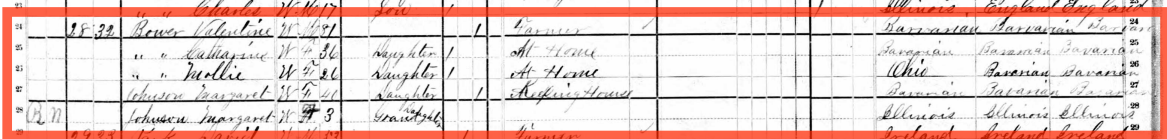 23 " " Charles W M 17 Son 1 Illinois England England
24 28 32 Bower Valentine W M 81 1 Farmer Bavarian Bavarian Bavarian 24
25 " " Catharine W F 36 Daughter 1 At Home Bavarian Bavarian Bavarian 25
26 " " Mollie W F 26 Daughter 1 At Home Ohio Bavarian Bavarian 26
27 Johnson Margaret W F 41 Daughter 1 Keeping House Bavarian Bavarian Bavarian 27
28 R N Johnson Margaret W F 3 Illinois Illinois Illinois 28
29 29 33 Farmer Ireland Ireland Ireland 29